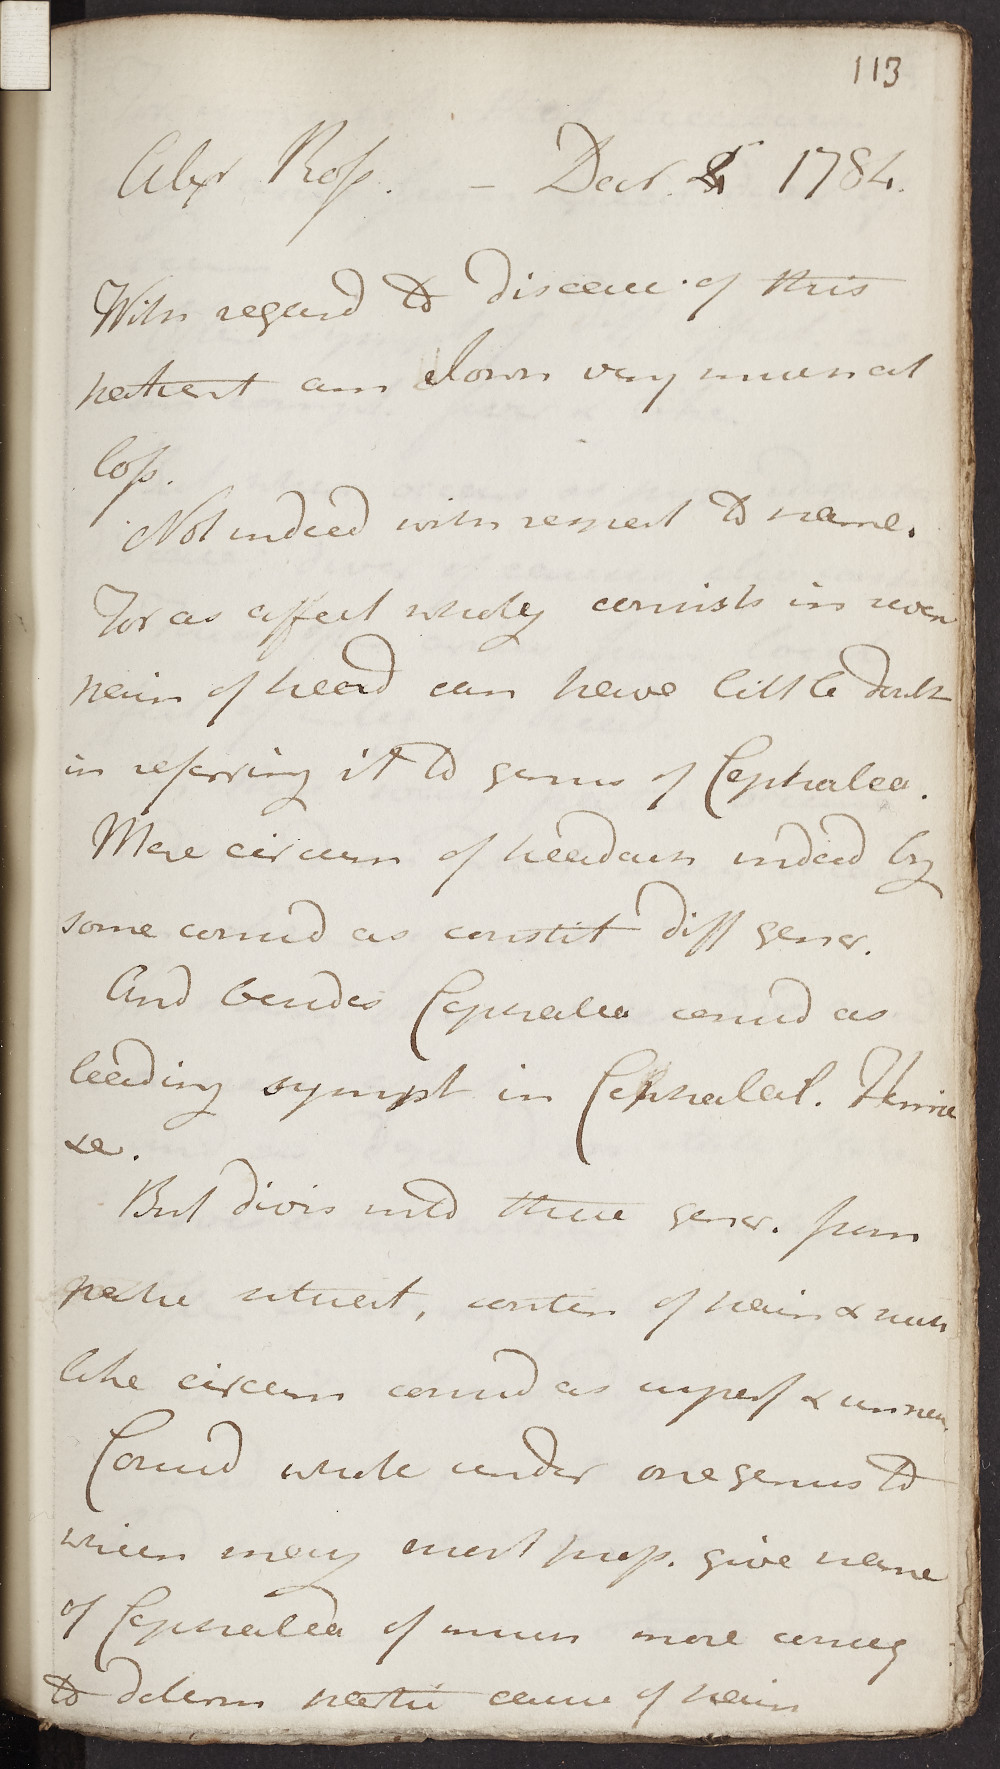 113
Alexr Ross. - Decr. 5 1784.
With regard to disease of this
patient am I own very much at
loss.
Not indeed with respect to name.
For as affect wholy consists in
pain of head can have little doubt
in referring it to genus of Cephalea.
Mere circum of headach indeed by
some consid as constit diff gener.
And besides Cephalea consid as
leading sympt in Cephalal. Hemic
&c.
But divis into these gener. from
partic situat, contin of pain & such
like circum consid as imperf & unnec.
Consid whole under one genus to
which may most prop. give name
of Cephalea of much more conseq
to determ partic cause of pain